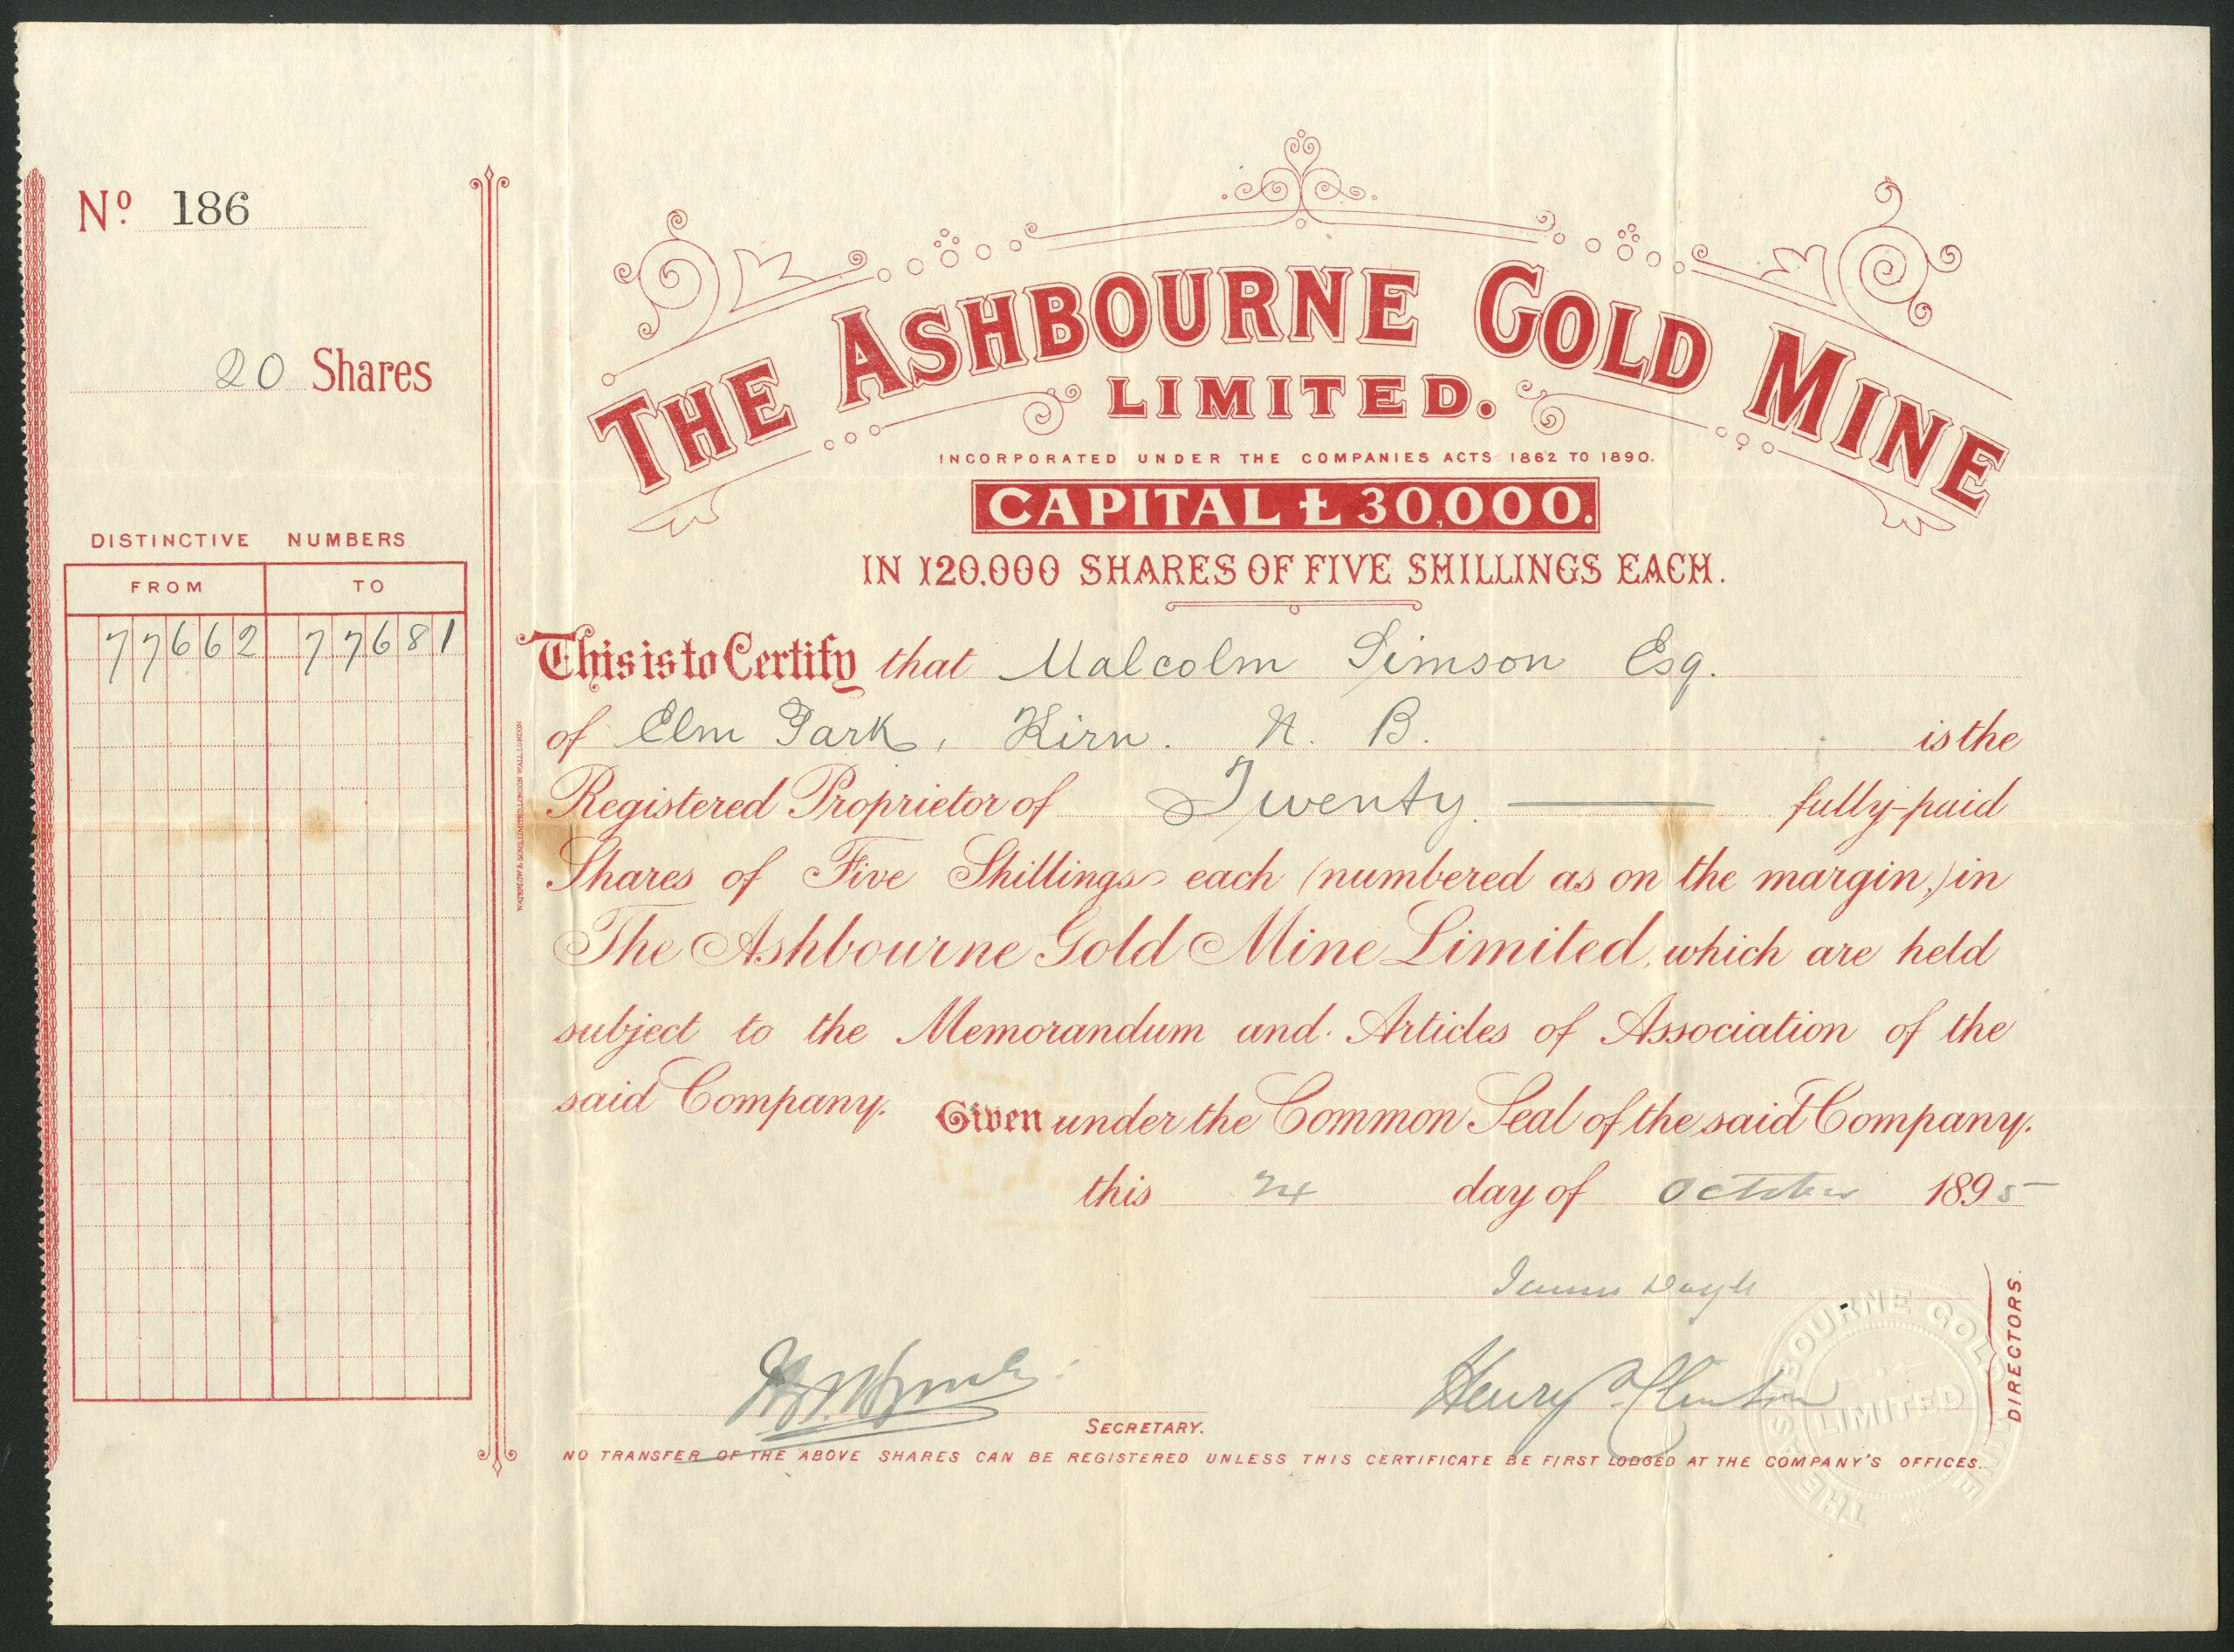 Nº 186
20 Shares
DISTINCTIVE NUMBERS
FROM TO
77662 77681
THE ASHBOURNE GOLD MINE
LIMITED.
INCORPORATED UNDER THE COMPANIES ACTS 1862 TO 1890.
CAPITAL £30,000.
IN 120,000 SHARES OF FIVE SHILLINGS EACH.
This is to Certify that Malcolm Simson Esq.
of Elm Park, Kirn. N. B. is the
Registered Proprietor of Twenty fully-paid
Shares of Five Shillings each (numbered as on the margin,) in
The Ashbourne Gold Mine Limited, which are held
subject to the Memorandum and Articles of Association of the
said Company. Given under the Common Seal of the said Company.
this 24 day of October 1895
James
Henry Clinton
DIRECTORS.
SECRETARY.
NO TRANSFER OF THE ABOVE SHARES CAN BE REGISTERED UNLESS THIS CERTIFICATE BE FIRST LODGED AT THE COMPANY'S OFFICES.
THE ASHBOURNE GOLD MINE
LIMITED
WATERLOW & SONS LIMITED, LONDON WALL, LONDON